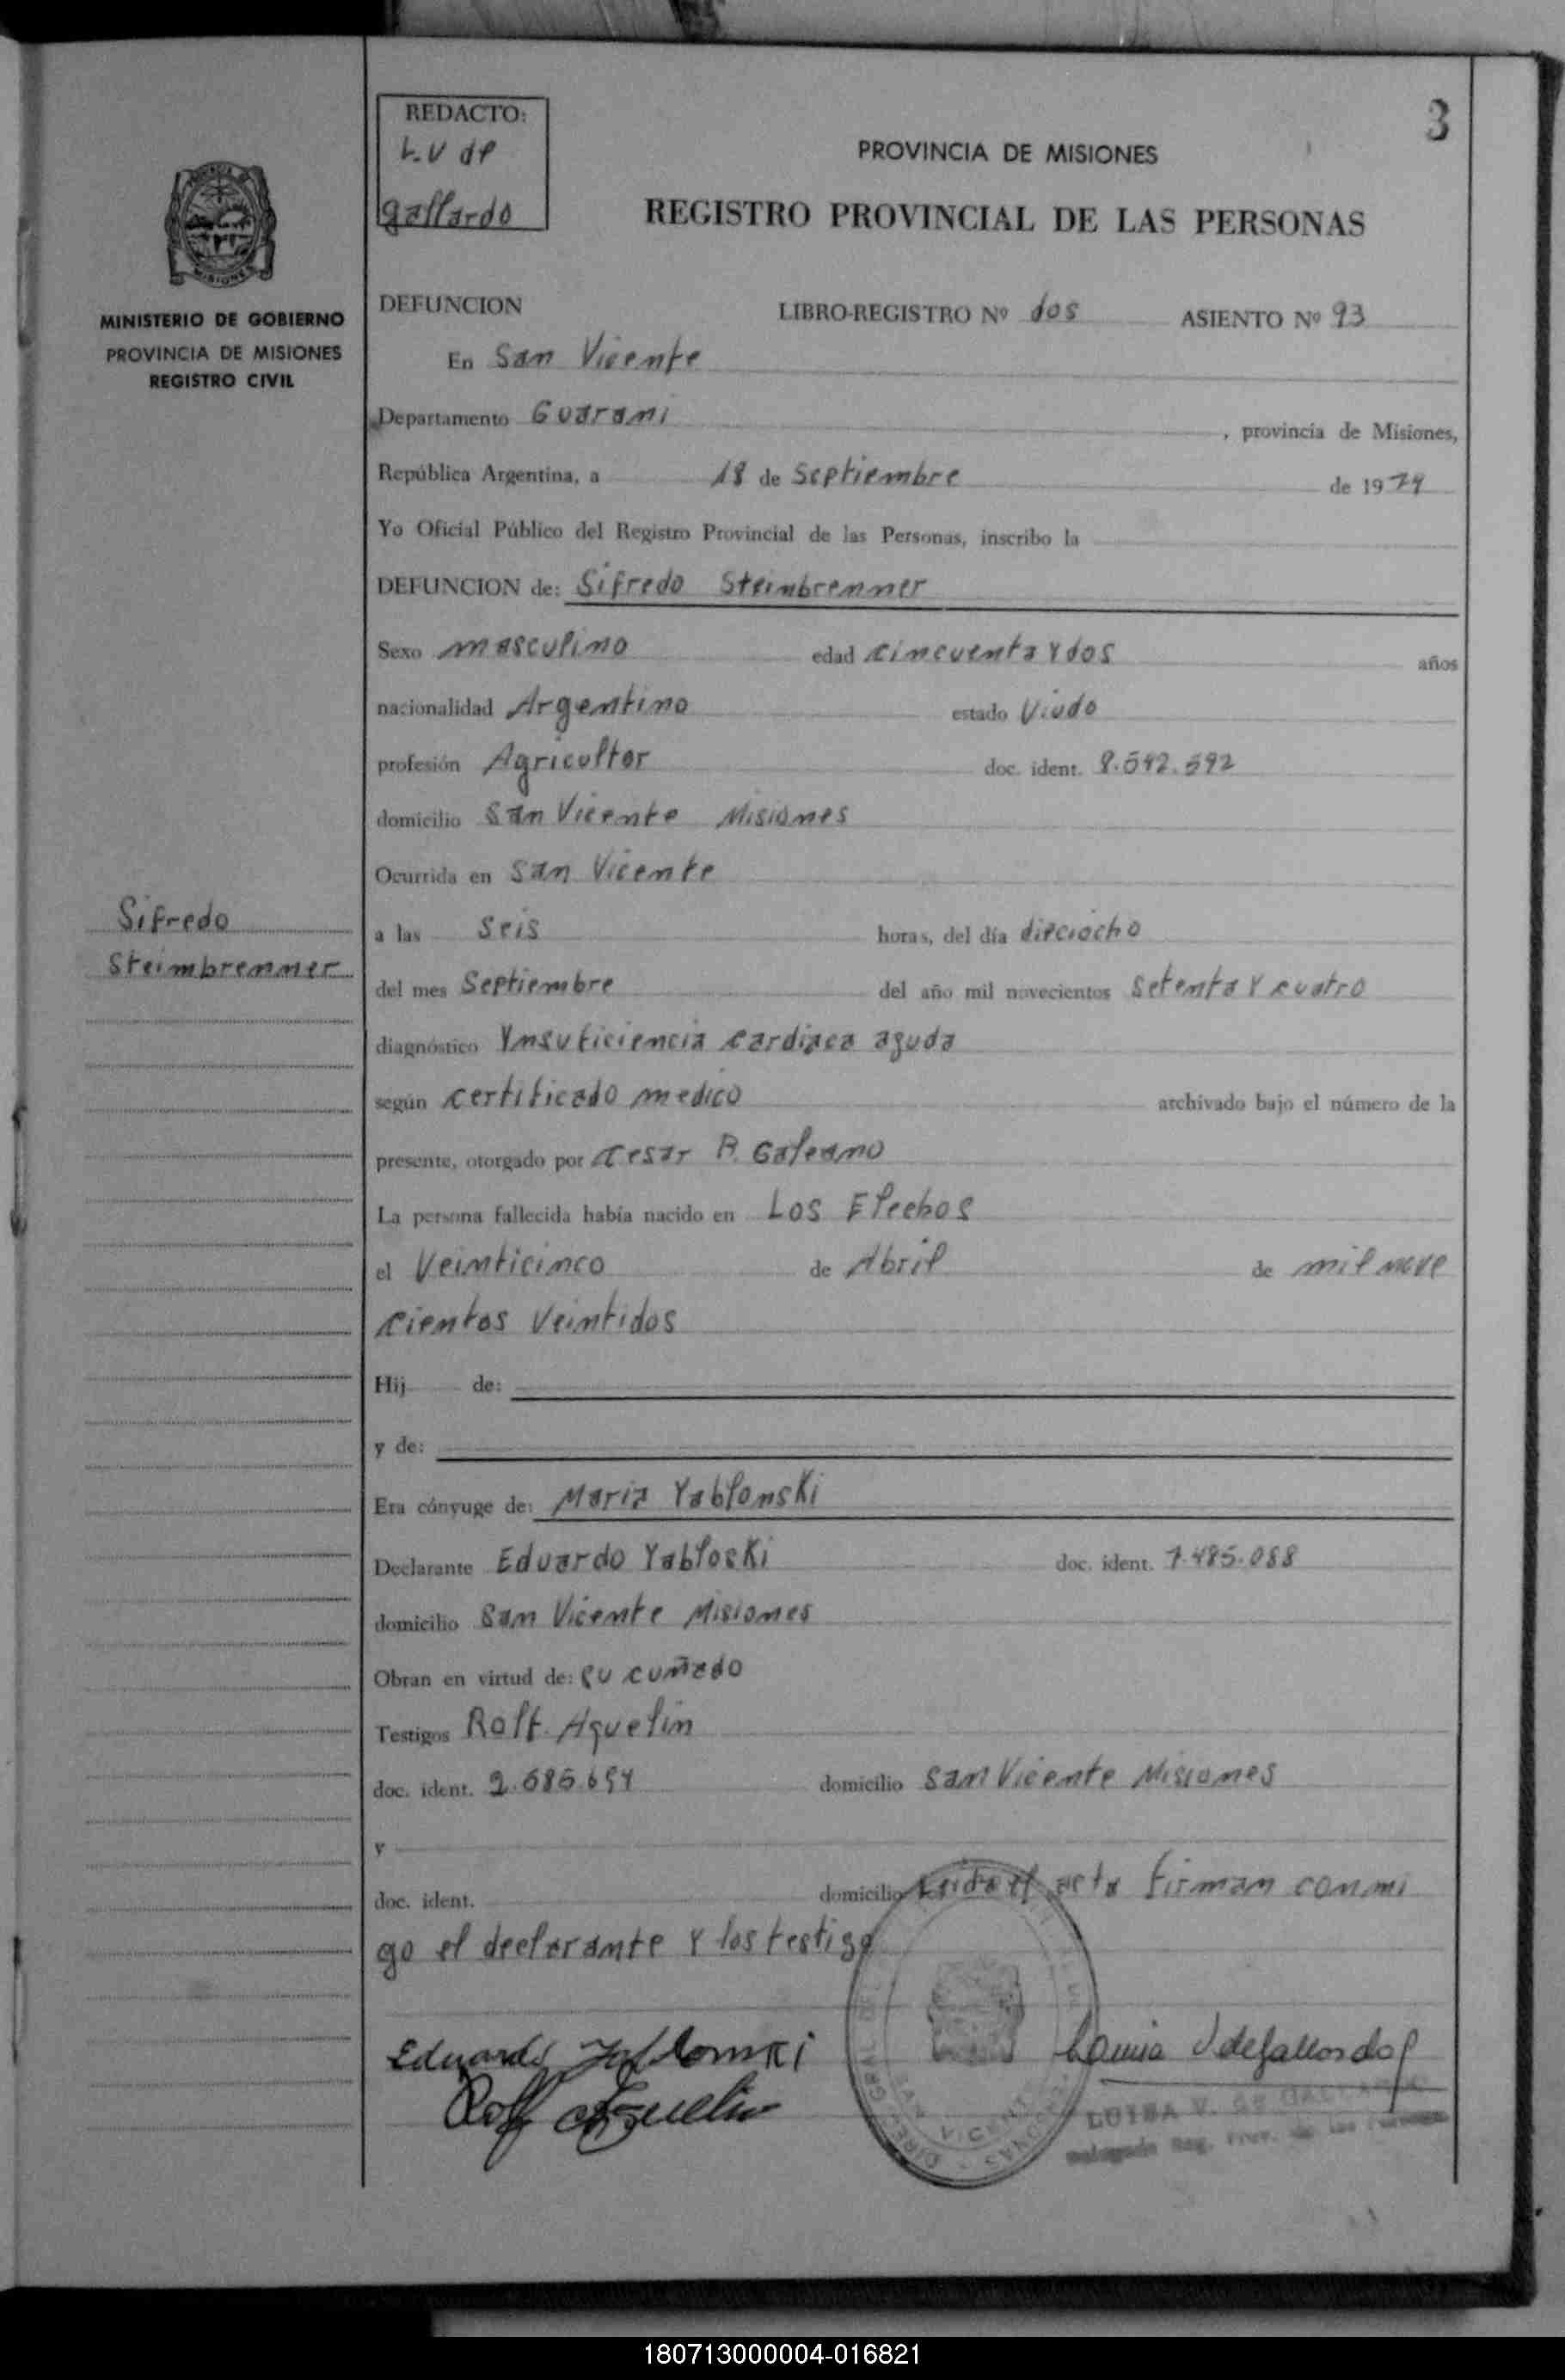 3
REDACTO:
L.V de
gallardo
PROVINCIA DE MISIONES
REGISTRO PROVINCIAL DE LAS PERSONAS
MINISTERIO DE GOBIERNO
PROVINCIA DE MISIONES
REGISTRO CIVIL
DEFUNCION LIBRO-REGISTRO Nº dos ASIENTO Nº 93
En San Vicente
Departamento Guarani , provincia de Misiones,
República Argentina, a 18 de Septiembre de 1974
Yo Oficial Público del Registro Provincial de las Personas, inscribo la
DEFUNCION de: Sifredo Steimbrenner
Sexo masculino edad cincuenta y dos años
nacionalidad Argentino estado Viudo
profesión Agricultor doc. ident. 8.542.592
domicilio San Vicente Misiones
Ocurrida en San Vicente
Sifredo
Steimbrenner
a las seis horas, del día dieciocho
del mes Septiembre del año mil novecientos setenta y cuatro
diagnóstico Ynsuficiencia cardiaca aguda
según certificado medico archivado bajo el número de la
presente, otorgado por Cesar R. Galeano
La persona fallecida había nacido en Los Elechos
el Veinticinco de Abril de mil nove
cientos Veintidos
Hij de:
y de:
Era cónyuge de: Maria Yablonski
Declarante Eduardo Yabloski doc. ident. 7.485.088
domicilio San Vicente Misiones
Obran en virtud de: su cuñado
Testigos Rolf. Aguelin
doc. ident. 2.685.654 domicilio San Vicente Misiones
y
doc. ident. domicilio Leida el acta firman conmi
go el declarante y los testigo
Eduardo Jablonski
Rolf Aguelin
LUISA V. DE GALLARDO
Delegada Reg. Prov. de las Personas
180713000004-016821